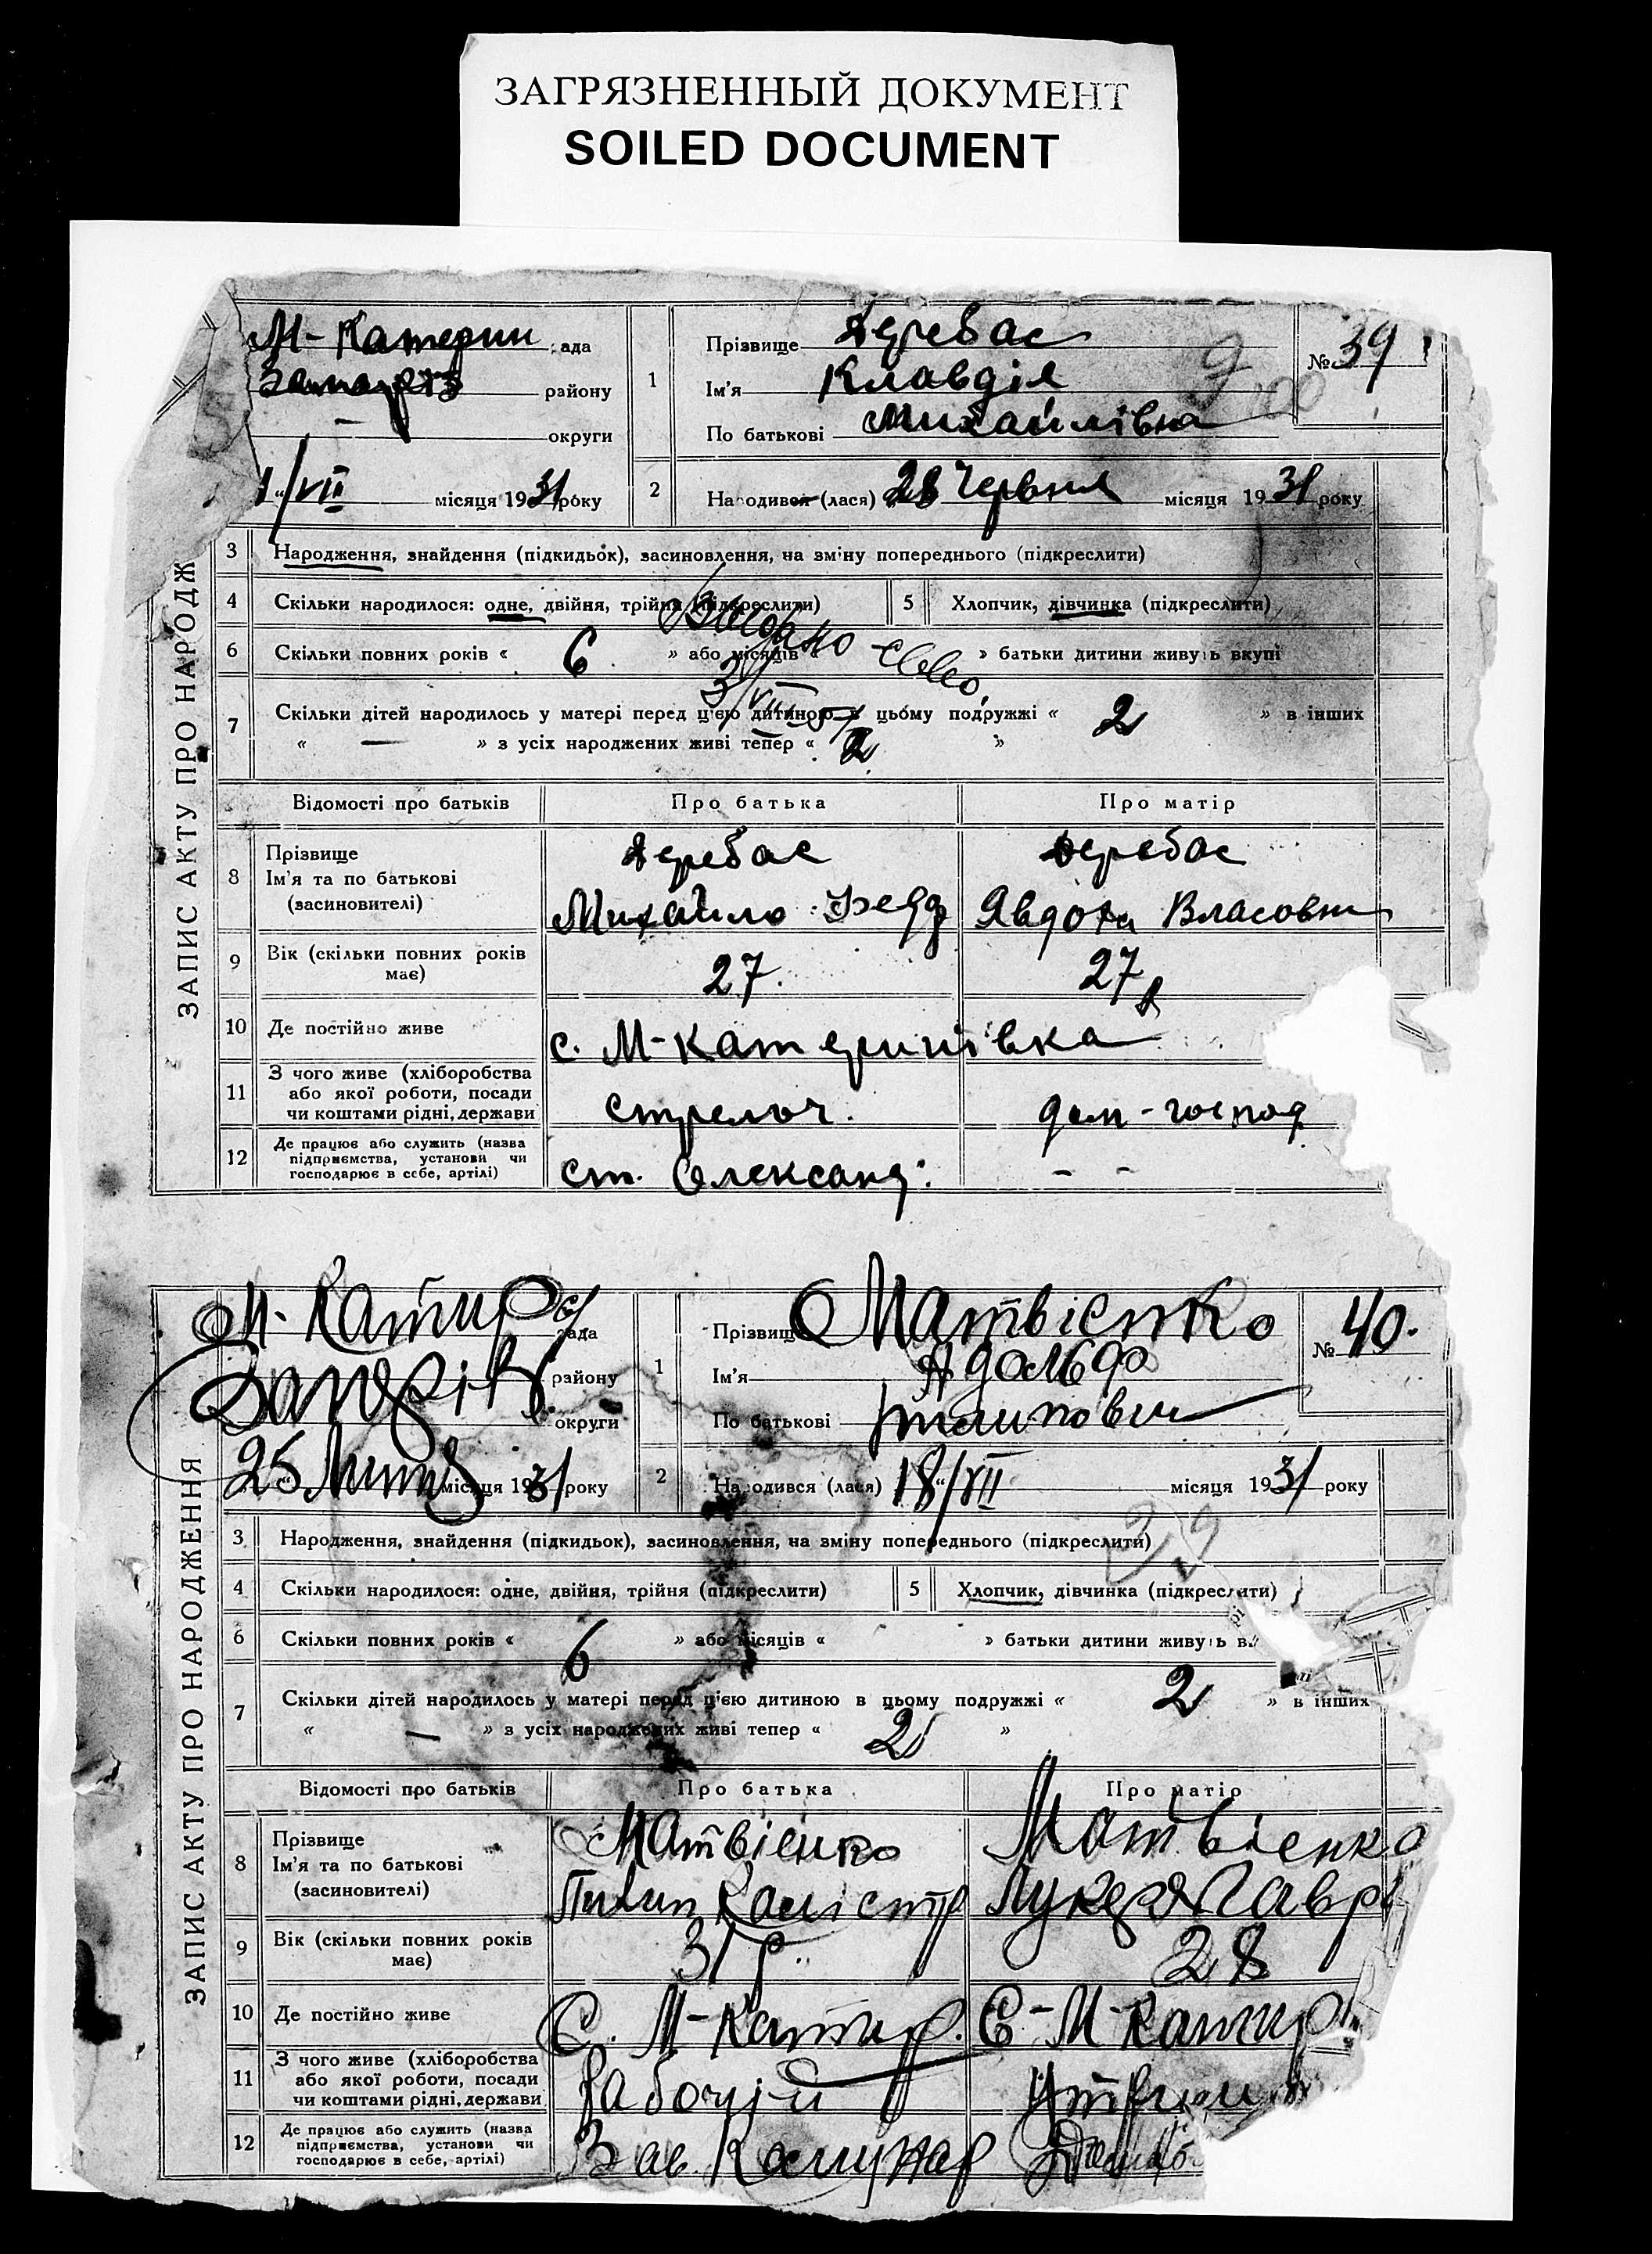 ЗАГРЯЗНЕННЫЙ ДОКУМЕНТ
SOILED DOCUMENT
ЗАПИС АКТУ ПРО НАРОДЖ
М-Катерин ада
району
— округи
1/VII місяця 1931 року
1
Прізвище Деребас
Ім'я Клавдія
По батькові Михайлівна
№ 39
2 Народився (лася) 28 Червня місяця 1931 року
3 Народження, знайдення (підкидьок), засиновлення, на зміну попереднього (підкреслити)
4 Скільки народилося: одне, двійня, трійня (підкреслити) 5 Хлопчик, дівчинка (підкреслити)
Видано
6 Скільки повних років « 6 » або місяців « » батьки дитини живуть вкупі
7 Скільки дітей народилось у матері перед цією дитиною в цьому подружжі « 2 » в інших
« — » з усіх народжених живі тепер « 2 »
Відомості про батьків Про батька Про матір
8 Прізвище Деребас Деребас
Ім'я та по батькові
(засиновителі) Михайло Федр Явдоха Власовн
9 Вік (скільки повних років має) 27. 27
10 Де постійно живе с. М-Катеринівка
11 З чого живе (хліборобства
або якої роботи, посади
чи коштами рідні, держави стрелоч. дом-господ
12 Де працює або служить (назва
підприємства, установи чи
господарює в себе, артілі) ст. Олександ. - -
ЗАПИС АКТУ ПРО НАРОДЖЕННЯ
М-Катир рада
району
округи
25 Липня місяця 1931 року
1
Прізвище Матвієнко
Ім'я Адольф
По батькові
№ 40.
2 Народився (лася) 18/VII місяця 1931 року
3 Народження, знайдення (підкидьок), засиновлення, на зміну попереднього (підкреслити)
4 Скільки народилося: одне, двійня, трійня (підкреслити) 5 Хлопчик, дівчинка (підкреслити)
6 Скільки повних років « 6 » або місяців « » батьки дитини живуть в
7 Скільки дітей народилось у матері перед цією дитиною в цьому подружжі « 2 » в інших
« — » з усіх народжених живі тепер « 2 »
Відомості про батьків Про батька Про матір
8 Прізвище Матвієнко Матвієнко
Ім'я та по батькові
(засиновителі) Пилип Калістр Лукеря Гаврі
9 Вік (скільки повних років має) 31 р 28
10 Де постійно живе С. М-Катир. С-М-Катир
11 З чого живе (хліборобства
або якої роботи, посади
чи коштами рідні, держави Рабочій Утрим
12 Де працює або служить (назва
підприємства, установи чи
господарює в себе, артілі) Зав. Комунар